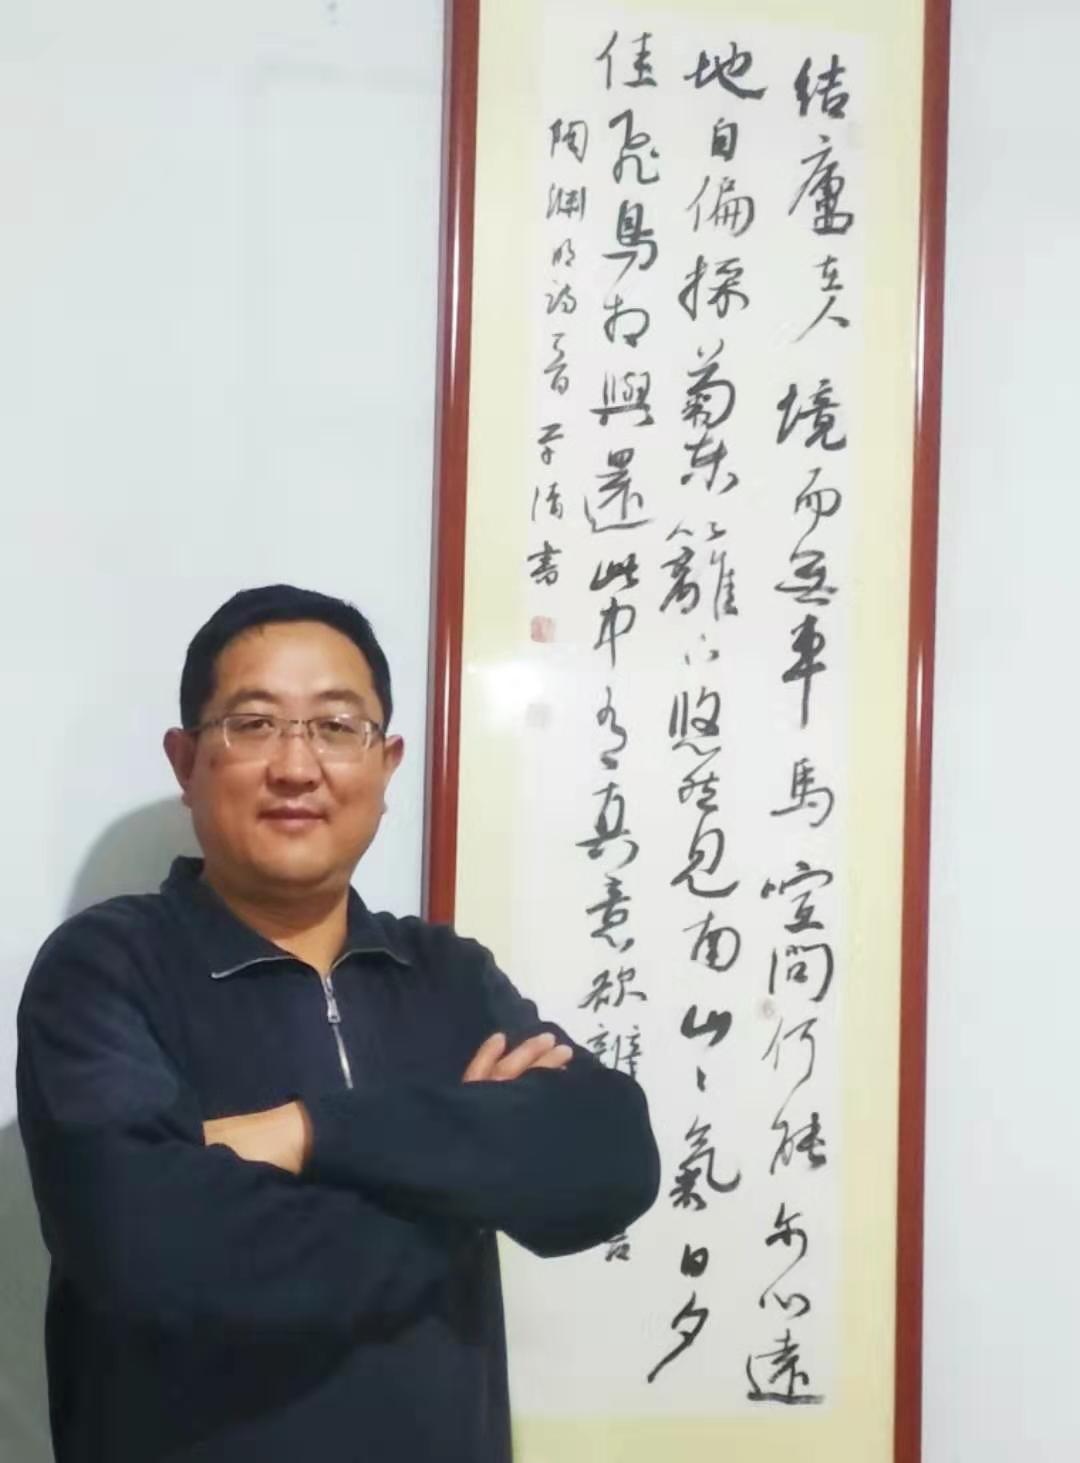 结廬在人境而无車馬喧問何能尔心遠
地自偏採菊東籬下悠然見南山山氣日夕
佳飛鳥相與還此中有真意欲辯言
陶渊明诗一首 清書